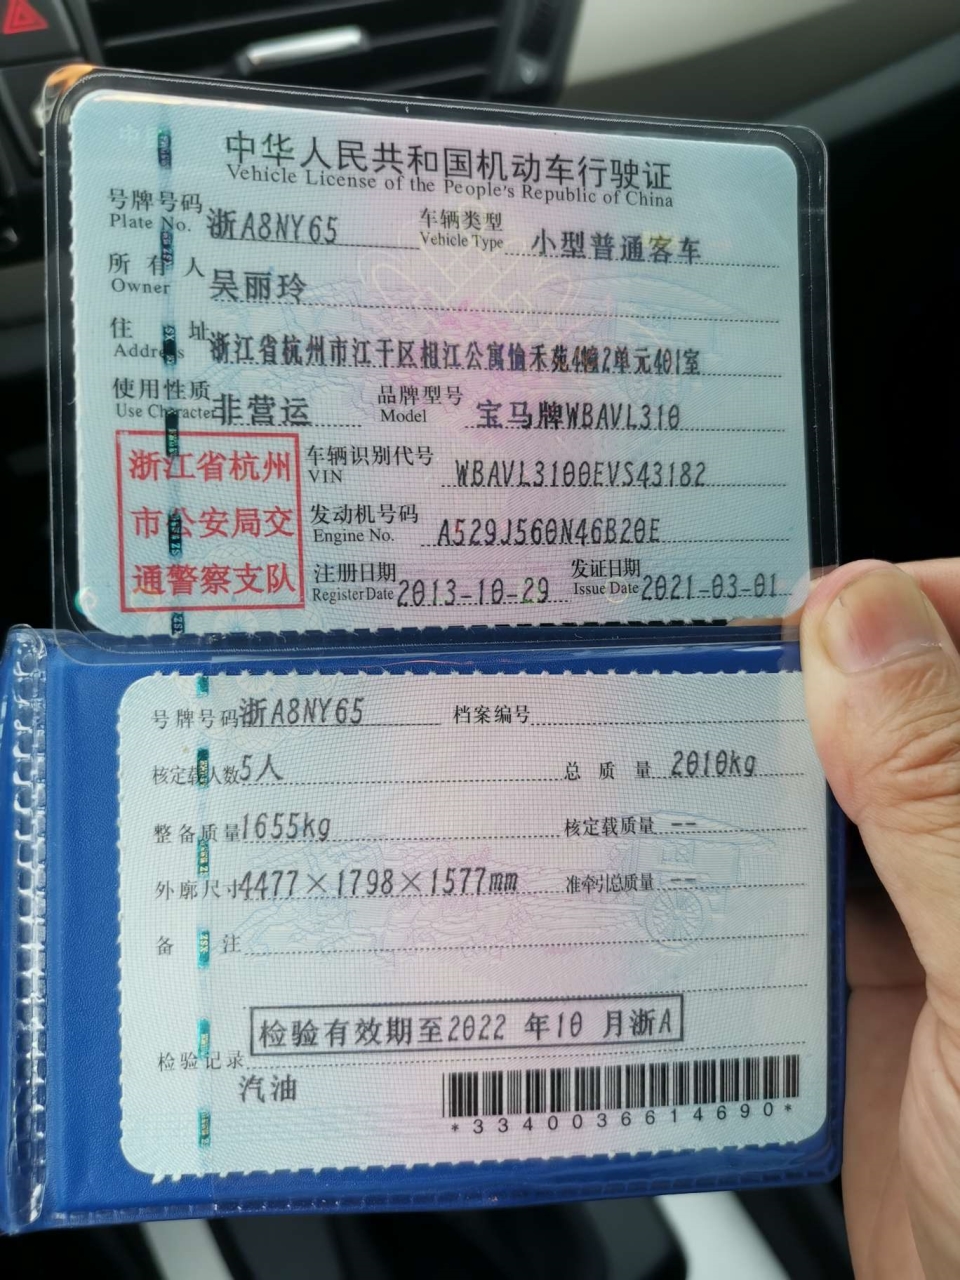 中华人民共和国机动车行驶证
Vehicle License of the People's Republic of China
号牌号码 浙A8NY65 车辆类型 小型普通客车
Plate No. Vehicle Type
所有人 吴丽玲
Owner
住址 浙江省杭州市江干区相江公寓愉禾苑4幢2单元401室
Address
使用性质 非营运 品牌型号 宝马牌WBAVL310
Use Character Model
浙江省杭州
市公安局交
通警察支队
车辆识别代号 WBAVL3100EVS43182
VIN
发动机号码 A529J560N46B20E
Engine No.
注册日期 2013-10-29 发证日期 2021-03-01
Register Date Issue Date
号牌号码 浙A8NY65 档案编号
核定载人数 5人 总质量 2010kg
整备质量 1655kg 核定载质量 --
外廓尺寸 4477×1798×1577mm 准牵引总质量 --
备注
检验有效期至2022 年10 月浙A
检验记录
汽油
*3340036614690*